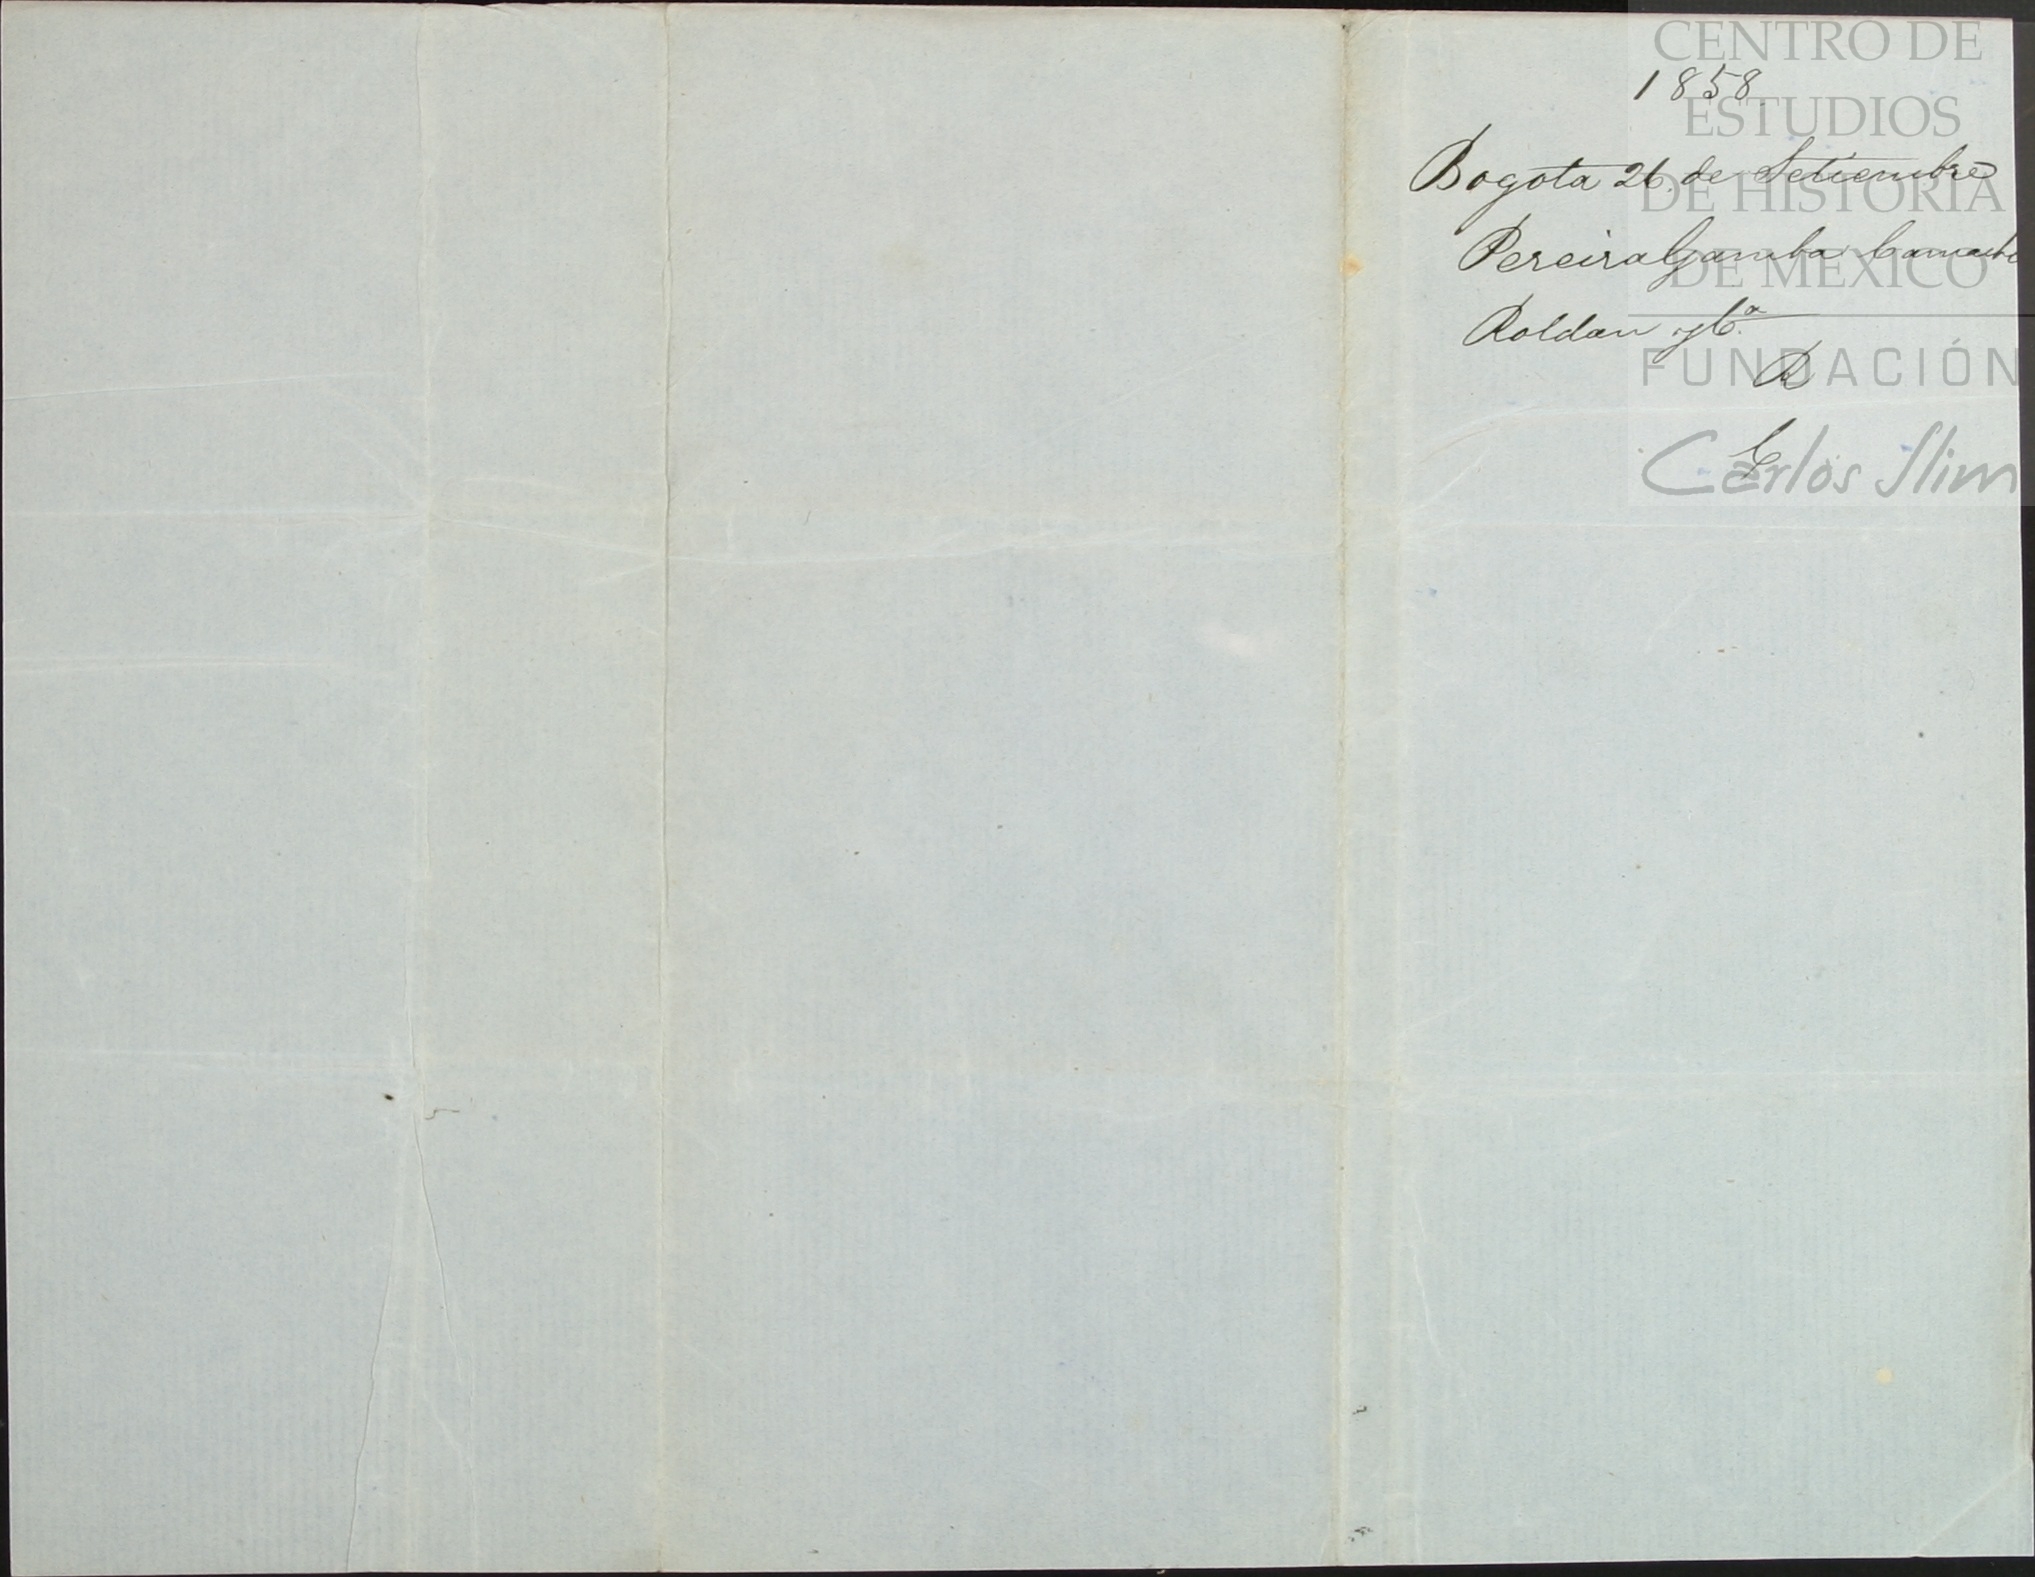 1858.
Bogota 26. de Setiembre
Pereira Gamba Camacho
Roldan y C.ª
R
C
CENTRO DE
ESTUDIOS
DE HISTORIA
DE MEXICO
FUNDACIÓN
Carlos Slim